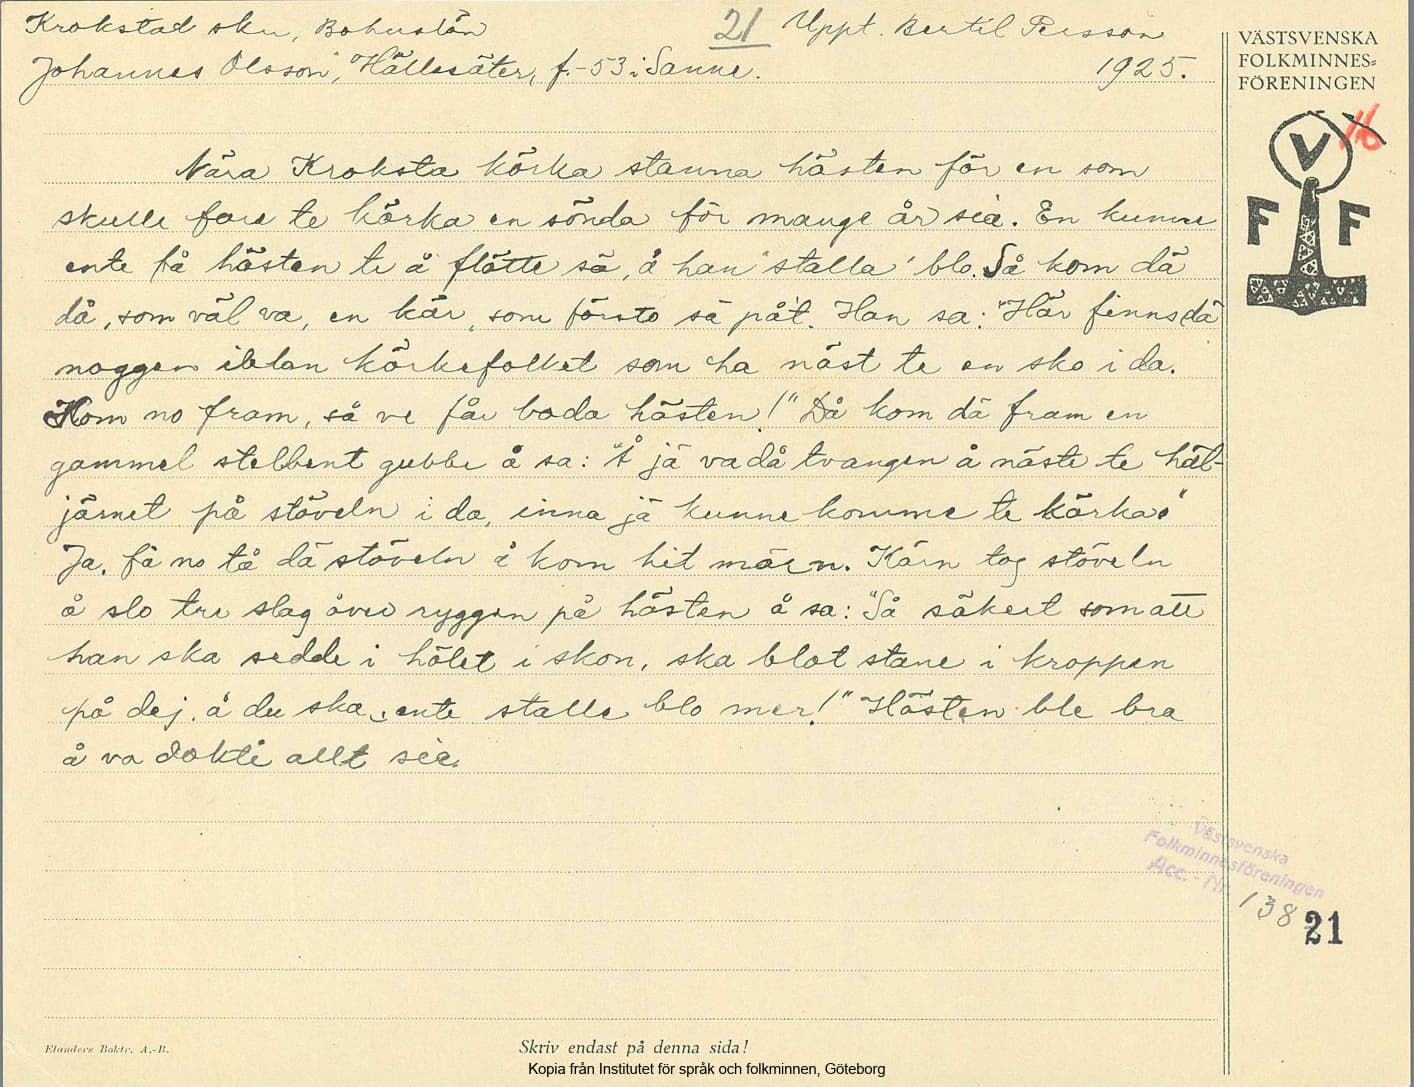 Krokstad skn, Bohuslän
21
Uppt. Bertil Persson
Johannes Olsson, Hällesäter, f.-53 i Sanne.
1925.
VÄSTSVENSKA
FOLKMINNES=
FÖRENINGEN
16
V
F F
Nära Kroksta körka stanna hästen för en som
skulle fare te körka en sönda för mange år sia. En kunne
ente få hästen te å flötte sä, å han "stalla" blo. Så kom dä
då, som väl va, en kär, som försto sä påt. Han sa: "Här finns dä
noggen iblan körkefolket som ha näst te en sko i da.
Kom no fram, så ve får boda hästen!" Då kom dä fram en
gammel stelbent gubbe å sa: "Å jä va då tvangen å näste te häl-
järnet på stöveln i da, inna jä kunne komme te körka."
Ja, få no tå dä stöveln å kom hit mäen. Kärn tog stöveln
å slo tre slag över ryggen på hästen å sa: "Så säkert som att
han ska sedde i hölet i skon, ska blot stane i kroppen
på dej, å du ska ente stalle blo mer!" Hästen ble bra
å va dokti allt sia.
Västsvenska
Folkminnesföreningen
Acc. - Nr. 138
21
Elanders Boktr. A.-B.
Skriv endast på denna sida!
Kopia från Institutet för språk och folkminnen, Göteborg